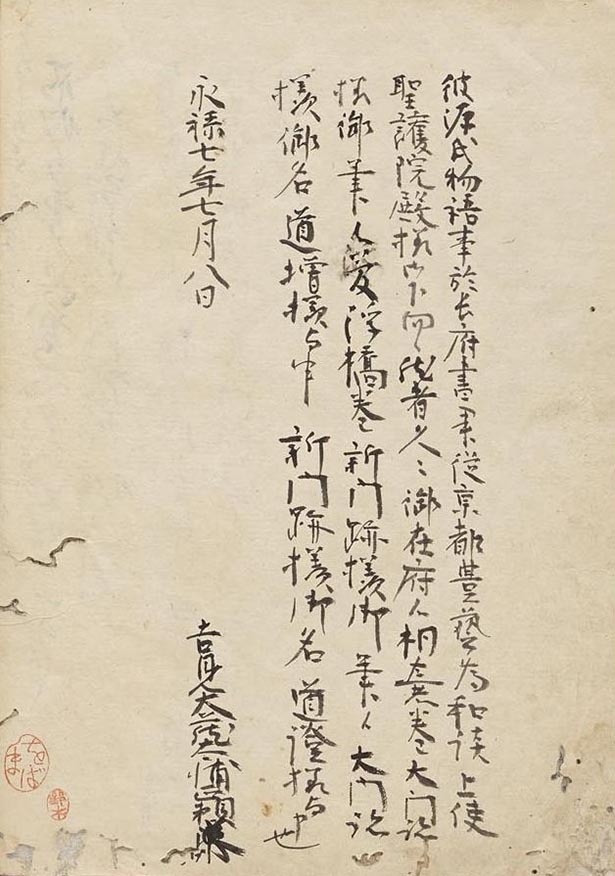 彼源氏物語事於長府書畢従京都豊藝為和談上使
聖護院殿様御下向候然者久々御在府候桐壺巻者大門跡
様御筆候夢浮橋巻者新門跡様御筆候大門跡
様御名道増様与申新門跡様御名道澄様与申也
永禄七年七月八日
吉見大蔵大輔正頼